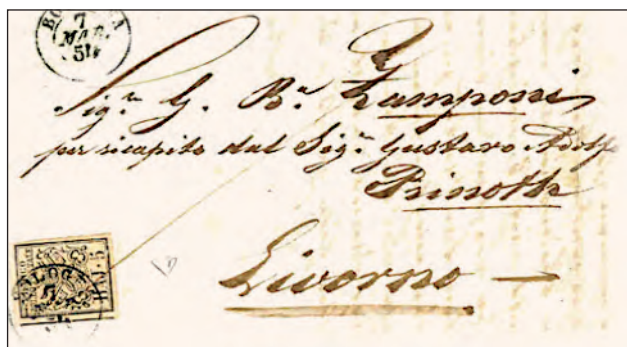 7
MAR
54
Sig.r G. B.a Zamponi
per ricapito dal Sig.r Gustavo Adolfo
Prinoth
Livorno —
BAJ 5
BOLOGNA
7